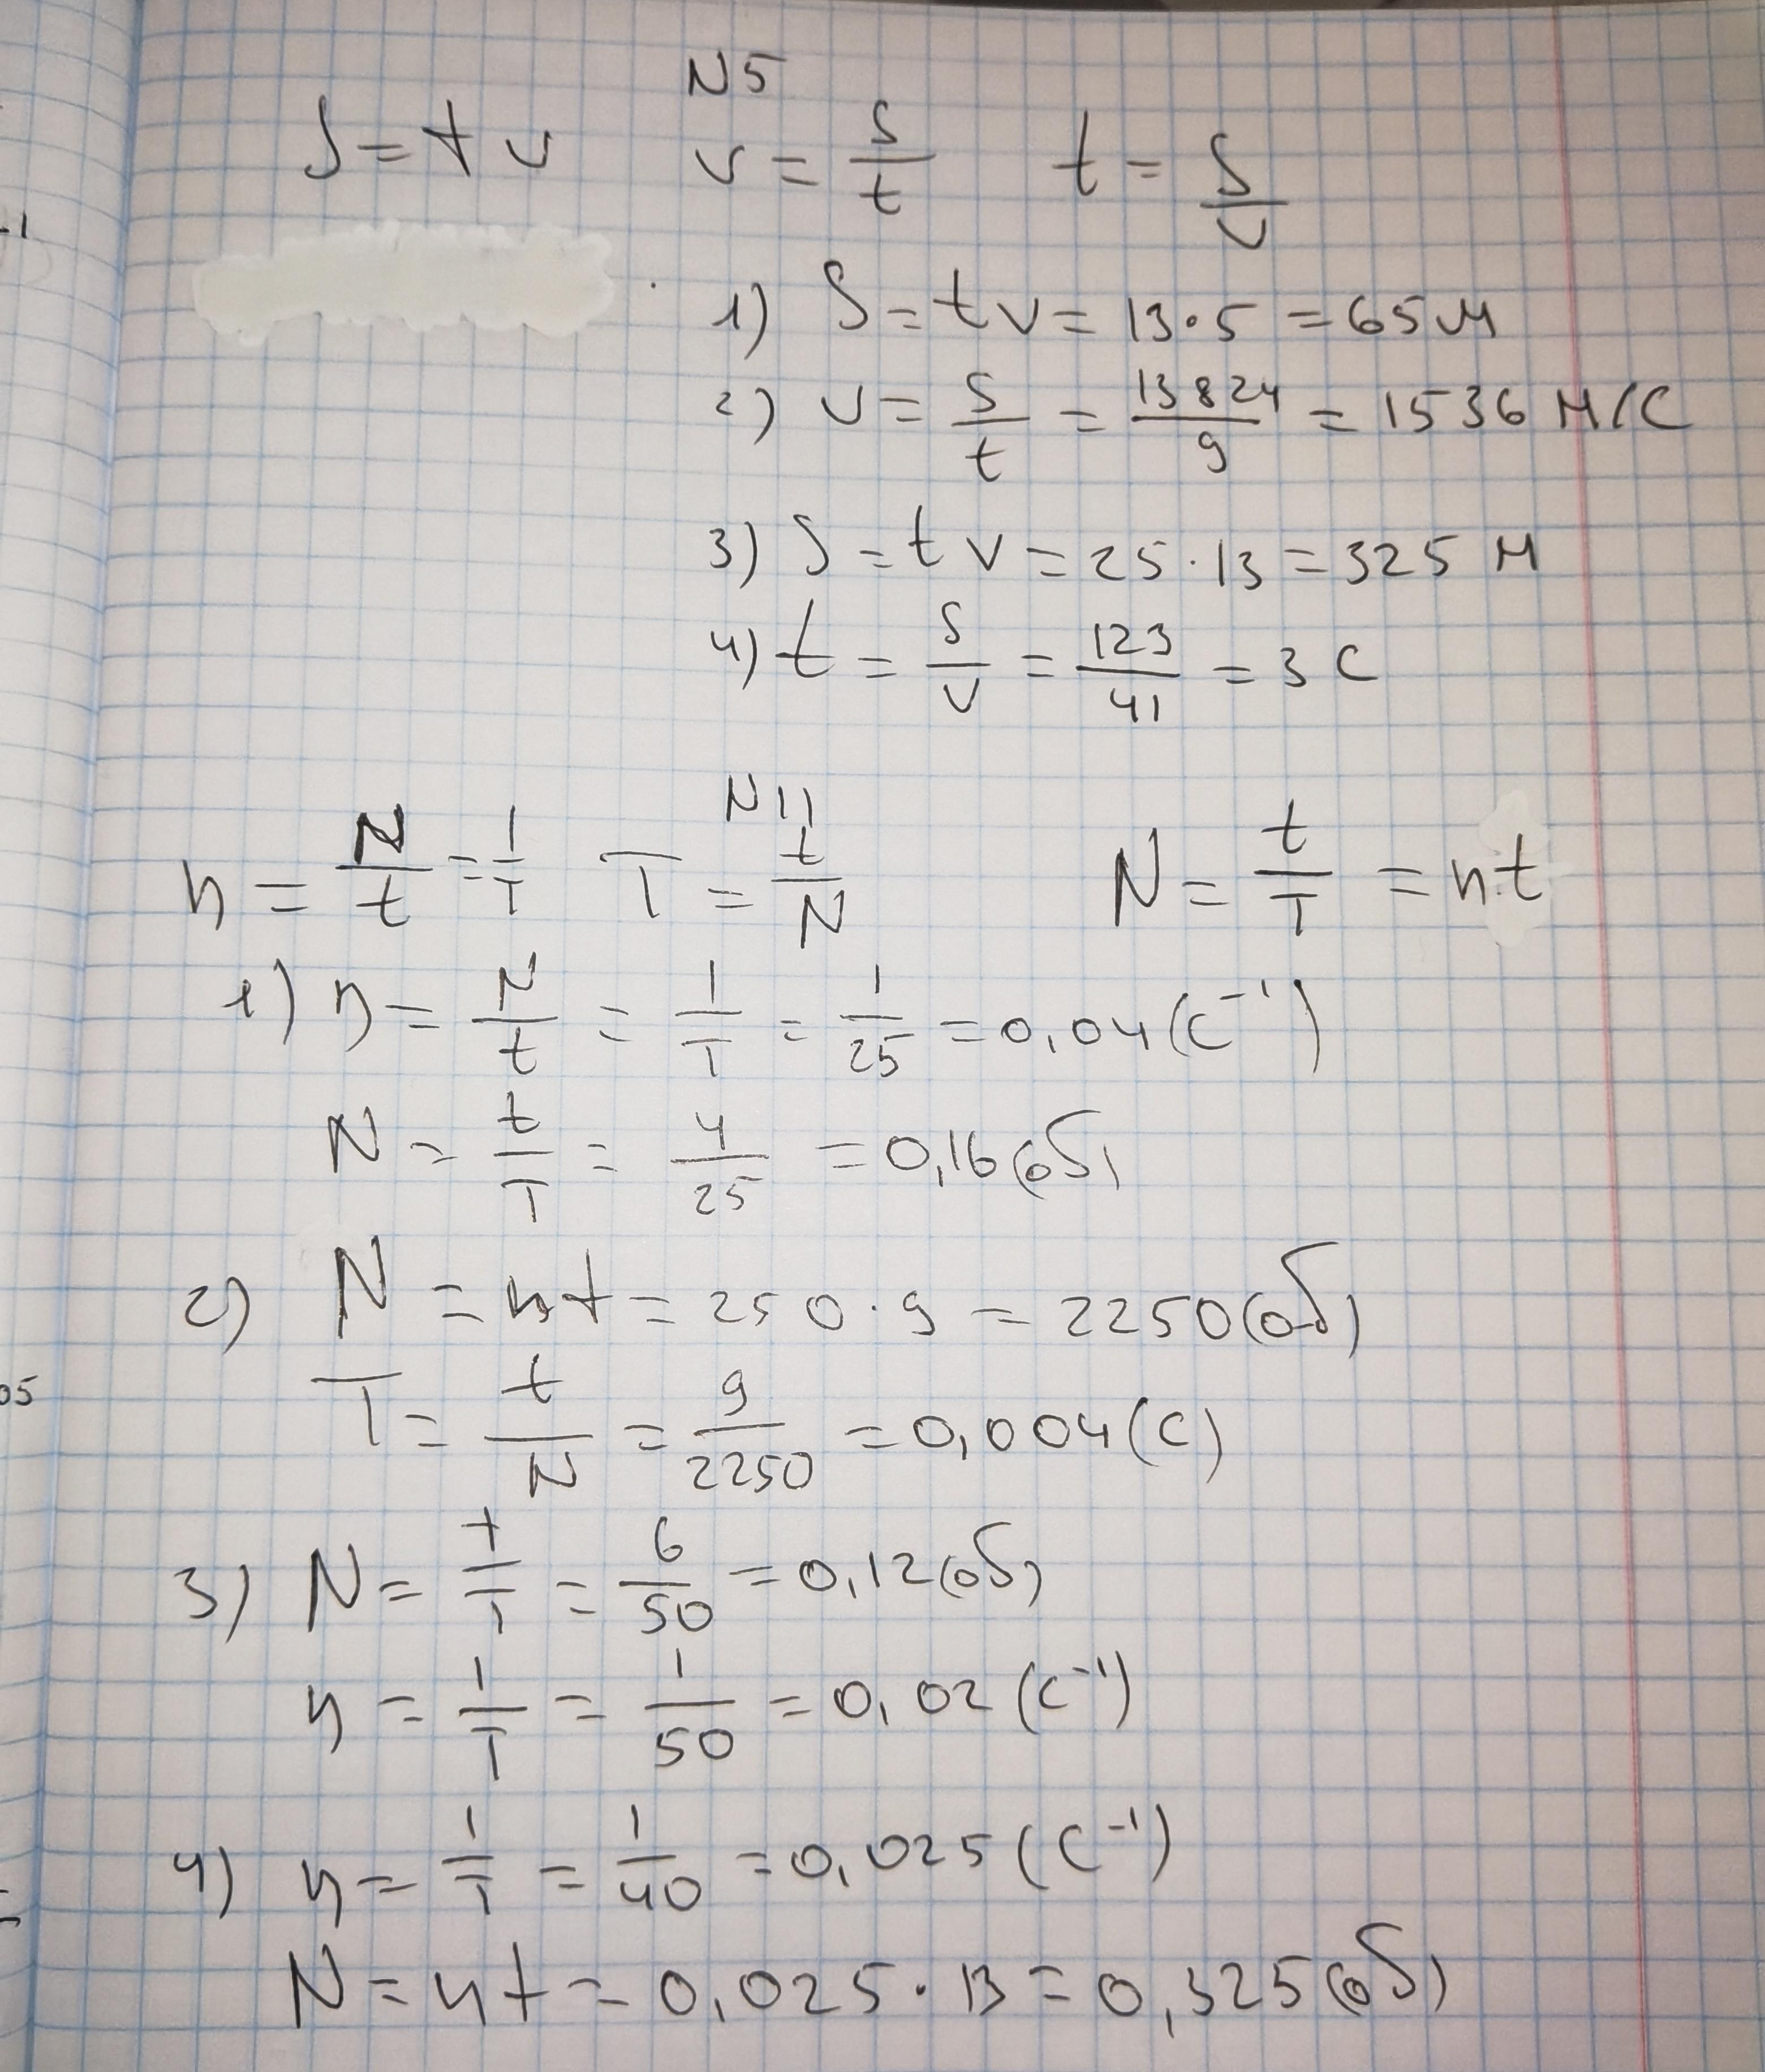 N5
S = t v   v = S/t   t = S/v
1) S = t v = 13 · 5 = 65 м
2) v = S/t = 13824/9 = 1536 м/с
3) S = t v = 25 · 13 = 325 м
4) t = S/v = 123/41 = 3 с
N11
n = N/t = 1/T   T = t/N   N = t/T = n t
1) n = N/t = 1/T = 1/25 = 0,04 (с⁻¹)
N = t/T = 4/25 = 0,16 (об)
2) N = n t = 250 · 9 = 2250 (об)
T = t/N = 9/2250 = 0,004 (с)
3) N = t/T = 6/50 = 0,12 (об)
n = 1/T = 1/50 = 0,02 (с⁻¹)
4) n = 1/T = 1/40 = 0,025 (с⁻¹)
N = n t = 0,025 · 13 = 0,325 (об)
05